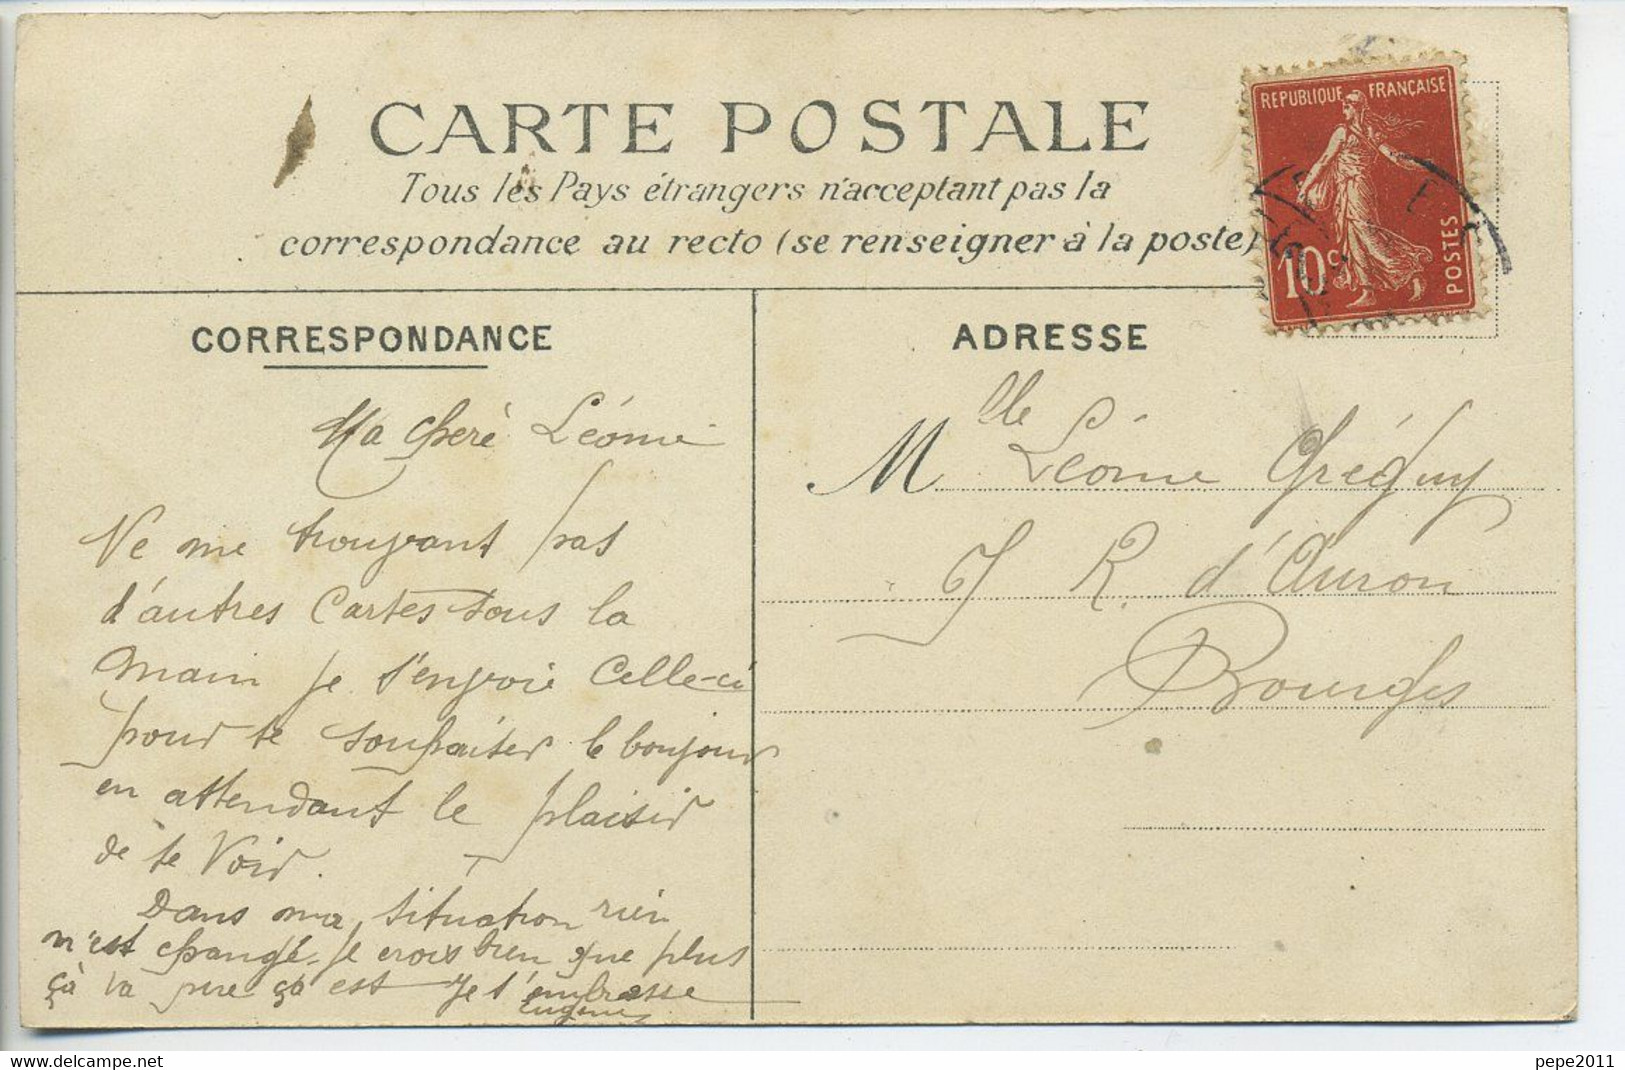 CARTE POSTALE
Tous les Pays étrangers n'acceptant pas la
correspondance au recto (se renseigner à la poste)
REPUBLIQUE FRANÇAISE
10c
POSTES
CORRESPONDANCE
Ma cherè Léonie
Ne me trouvant pas
d'autres Cartes sous la
main je t'envoie Celle-ci
pour te souhaiter le bonjour
en attendant le plaisir
de te Voir.
Dans ma situation rien
n'est changé. je crois bien que plus
çà va pire ça est Je t'embrasse
Eugenie
ADRESSE
Mlle Léonie Gréguy
R. d'Auron
Bourges
pepe2011